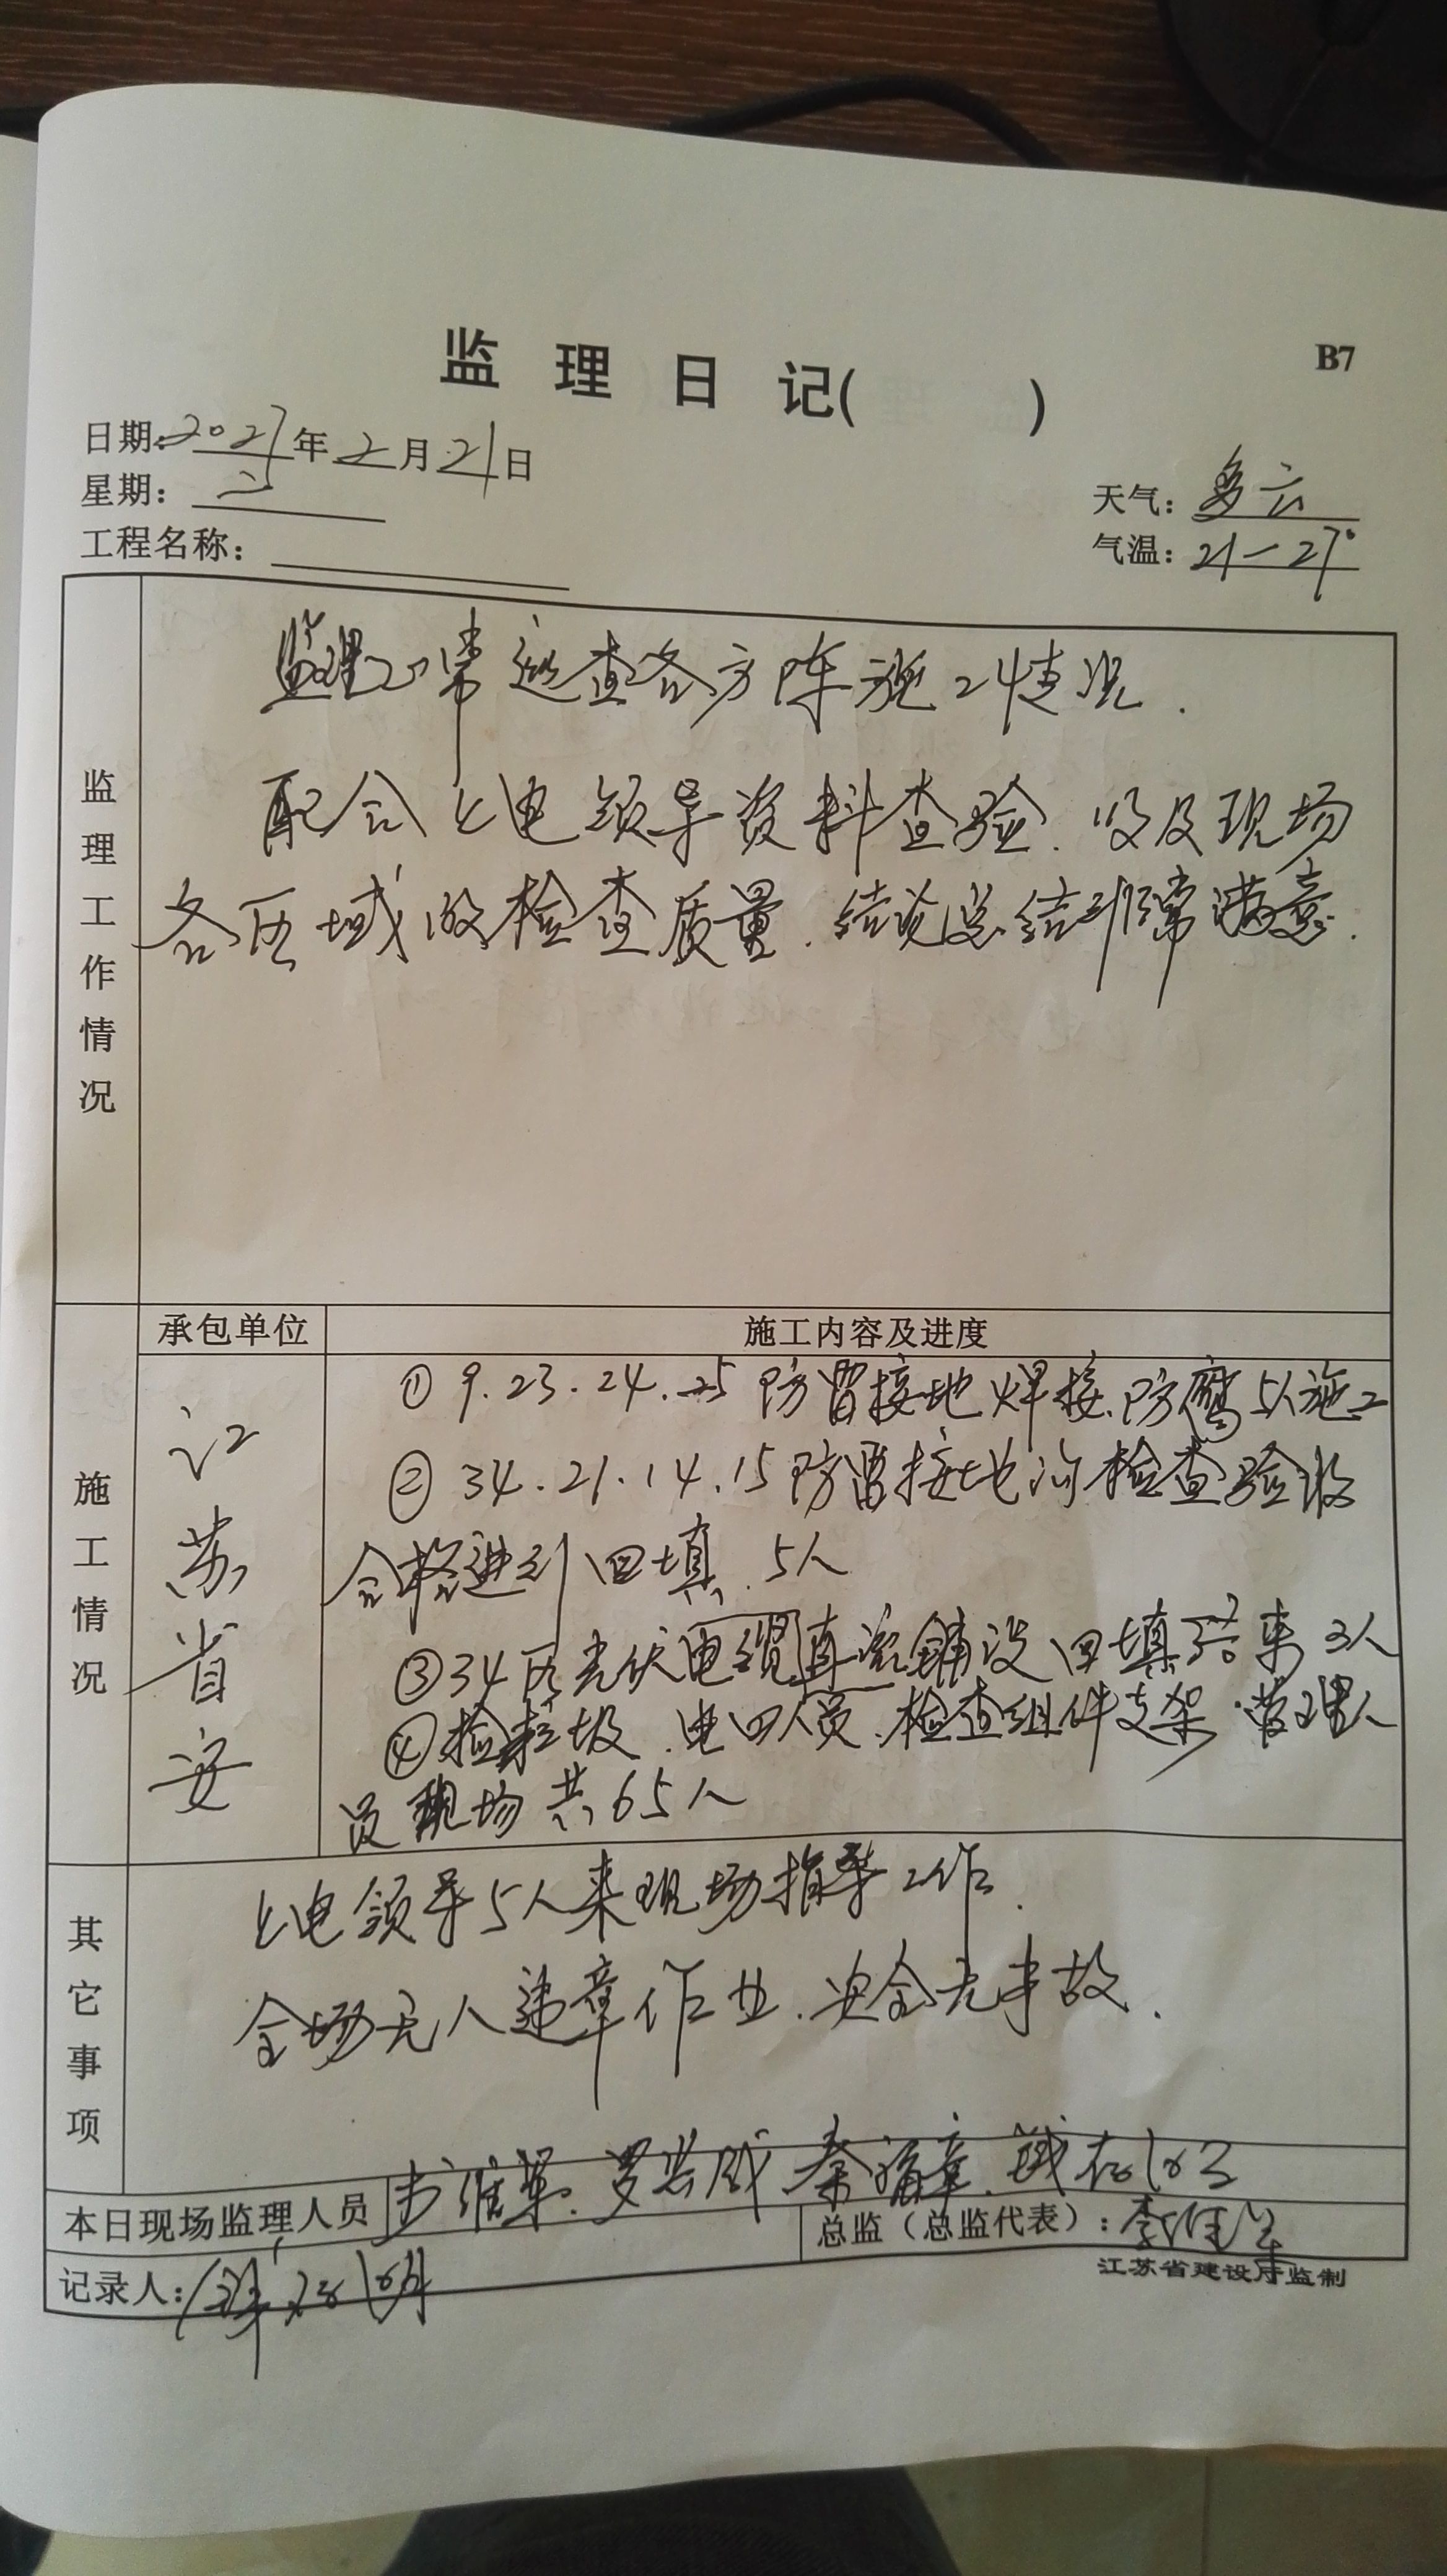 监理日记( )
B7
日期:2021年2月21日
星期:二
天气:多云
工程名称:
气温:21—27°
监理工作情况
监理正常巡查各方阵施工情况.
配合上电领导资料查验.以及现场
各区域的检查质量.结论总结非常满意.
施工情况
承包单位
施工内容及进度
江苏省安
① 9.23.24.25防雷接地焊接.防腐5人施工
② 34.21.14.15防雷接地沟检查验收
合格进行回填.5人
③34区光伏电缆直流铺设回填结束3人
④捡垃圾.电四人员.检查组件支架.管理人
员现场共65人
其它事项
上电领导5人来现场指导工作.
全场无人违章作业.安全无事故.
本日现场监理人员
总监(总监代表):
江苏省建设厅监制
记录人: